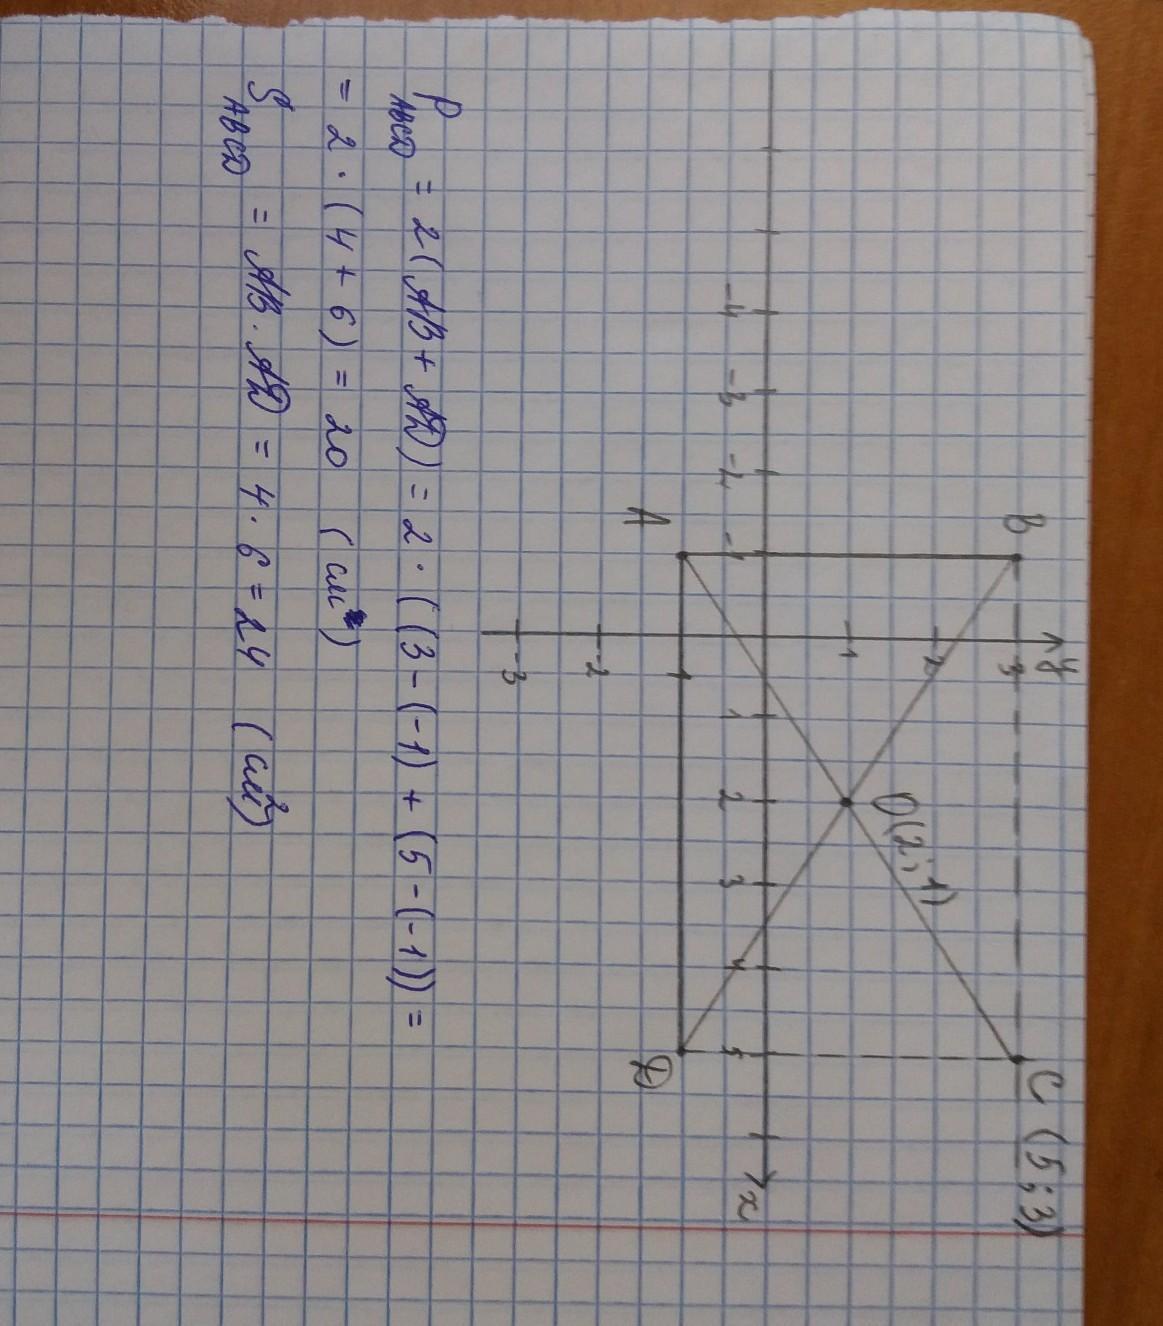 y
B
3
C (5;3)
2
1
O(2;1)
-4 -3 -2 -1 1 2 3 4 5 x
A
-1
D
-2
-3
P ABCD = 2(AB + AD) = 2 · ((3 - (-1) + (5 - (-1)) =
= 2 · (4 + 6) = 20 (см)
S ABCD = AB · AD = 4 · 6 = 24 (см²)